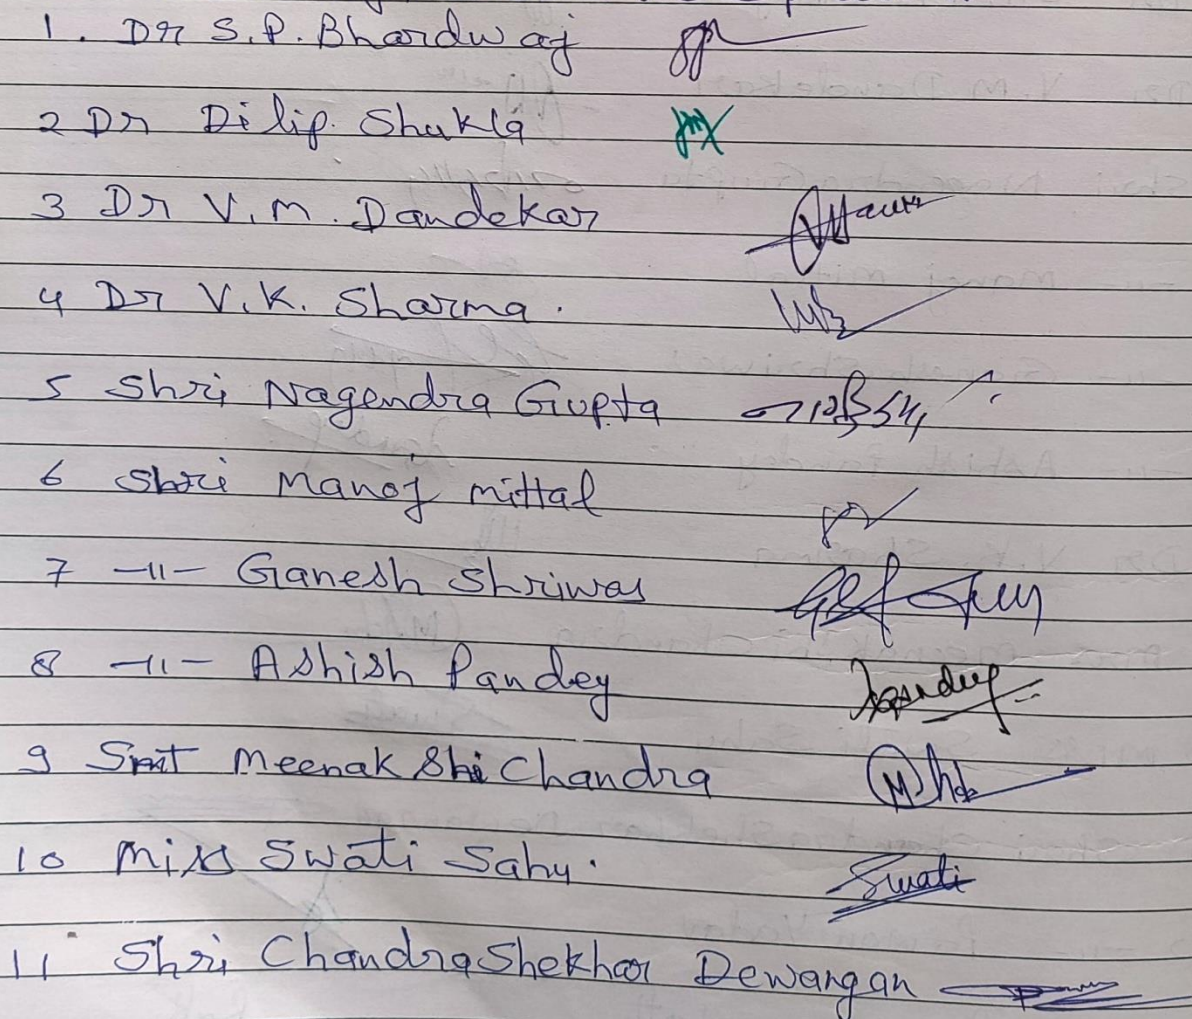 1. Dr S.P. Bhardwaj
2 Dr Dilip. Shukla
3 Dr V.M. Dandekar
4 Dr V.K. Sharma.
5 Shri Nagendra Gupta
6 Shri Manoj mittal
7 -11- Ganesh Shriwas
8 -11- Ashish Pandey
9 Smt Meenakshi Chandra
10 Miss Swati Sahu. Swati
11 Shri ChandraShekhar Dewangan